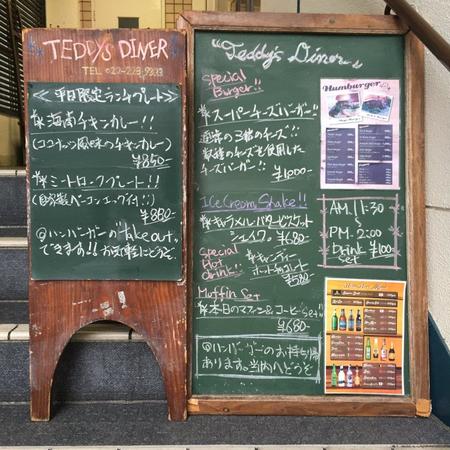 TEDDYS DINER
TEL. 022-223-9333
≪平日限定ランチプレート≫
海南チキンカレー!!
(ココナッツ風味のチキンカレー)
¥850-
ミートローフプレート!!
(自家製ベーコンエッグ付!!)
¥880-
@ハンバーガーの"Take out"
できます!! お気軽にどうぞ
"Teddy's Diner"
Special
Burger!!
スーパーチーズバーガー!!
通常の3倍のチーズ!!
数種のチーズを使用した
チーズバーガー!!
¥1000-
Ice Cream Shake!!
キャラメルバタービスケット
シェイク。¥680-
Special
Hot
Drink!
キャンディー
ホットチョコレート
¥580-
Muffin Set
本日のマフィン&コーヒー"Set"
¥680-
@ハンバーガーのお持ち帰り
あります。店内へどうぞ
Humburger
AM.11:30
~
PM.2:00
Drink ¥100-
Set